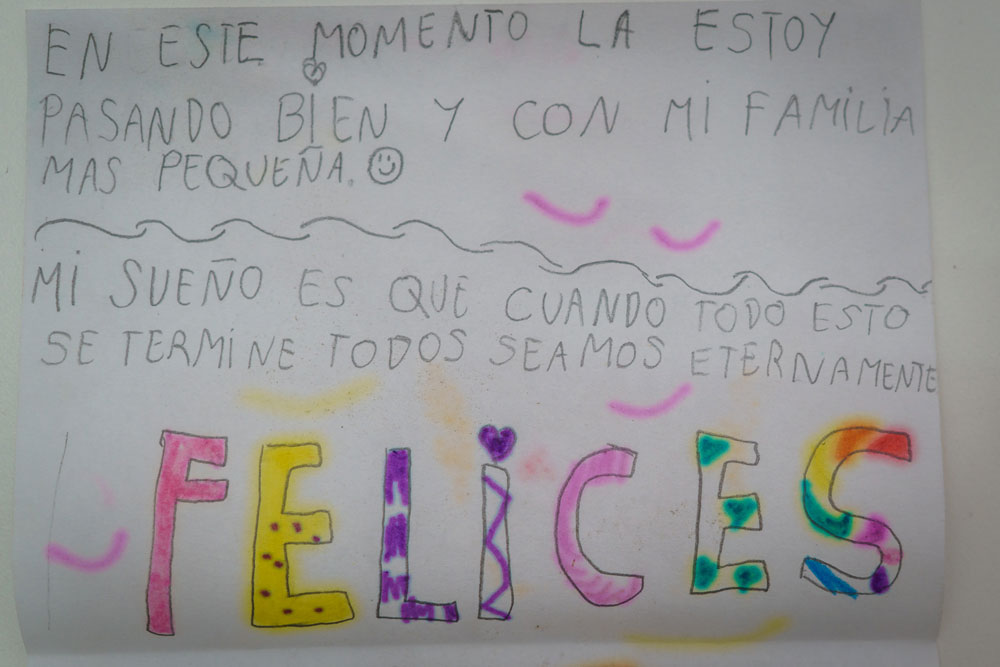 EN ESTE MOMENTO LA ESTOY
PASANDO BIEN Y CON MI FAMILIA
MAS PEQUEÑA.
MI SUEÑO ES QUE CUANDO TODO ESTO
SE TERMINE TODOS SEAMOS ETERNAMENTE
FELICES